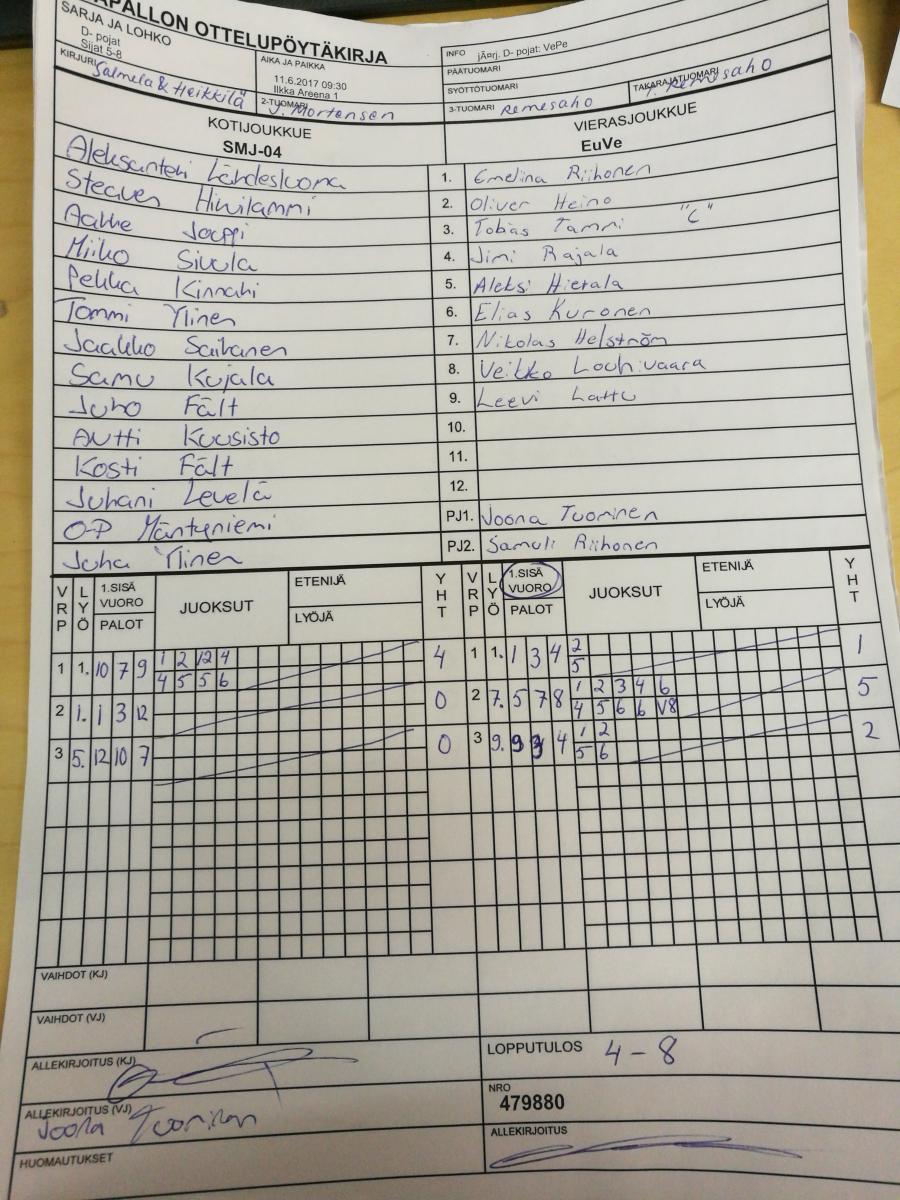 APALLON OTTELUPÖYTÄKIRJA
SARJA JA LOHKO
D- pojat
Sijat 5-8
AIKA JA PAIKKA
11.6.2017 09:30
Ilkka Areena 1
INFO jÃ¤rj. D- pojat: VePe
PÄÄTUOMARI
KIRJURI Salmela & Heikkilä
2-TUOMARI J. Mortensen
SYÖTTÖTUOMARI
3-TUOMARI Remesaho
TAKARAJATUOMARI T. Remesaho
KOTIJOUKKUE VIERASJOUKKUE
SMJ-04 EuVe
Aleksanteri Lähdesluoma 1. Emelina Riihonen
Steaven Hirvilammi 2. Oliver Heino
Aakke Jaeppi 3. Tobias Tammi "C"
Miiko Sivula 4. Jimi Rajala
Pekka Kinnari 5. Aleksi Hietala
Tommi Ylinen 6. Elias Kuronen
Jaakko Saikanen 7. Nikolas Helström
Samu Kujala 8. Veikko Louhivaara
Juho Fält 9. Leevi Lattu
Antti Kuusisto 10.
Kosti Fält 11.
Juhani Levelä 12.
O-P Mäntyniemi PJ1. Joona Tuominen
Juha Ylinen PJ2. Samuli Riihonen
VRP LYÖ 1.SISÄ VUORO PALOT JUOKSUT ETENIJÄ LYÖJÄ YHT VRP LYÖ 1.SISÄ VUORO PALOT JUOKSUT ETENIJÄ LYÖJÄ YHT
1 1. 10 7 9 1 2 12 4 4 1 1. 1 3 4 2 1
4 5 5 6 5
2 1. 1 3 12 0 2 7. 5 7 8 1 2 3 4 6 5
4 5 6 6 V8
3 5. 12 10 7 0 3 9. 9 3 4 1 2 2
5 6
VAIHDOT (KJ)
VAIHDOT (VJ)
ALLEKIRJOITUS (KJ)
LOPPUTULOS 4-8
ALLEKIRJOITUS (VJ)
Joona Tuominen
NRO
479880
HUOMAUTUKSET
ALLEKIRJOITUS